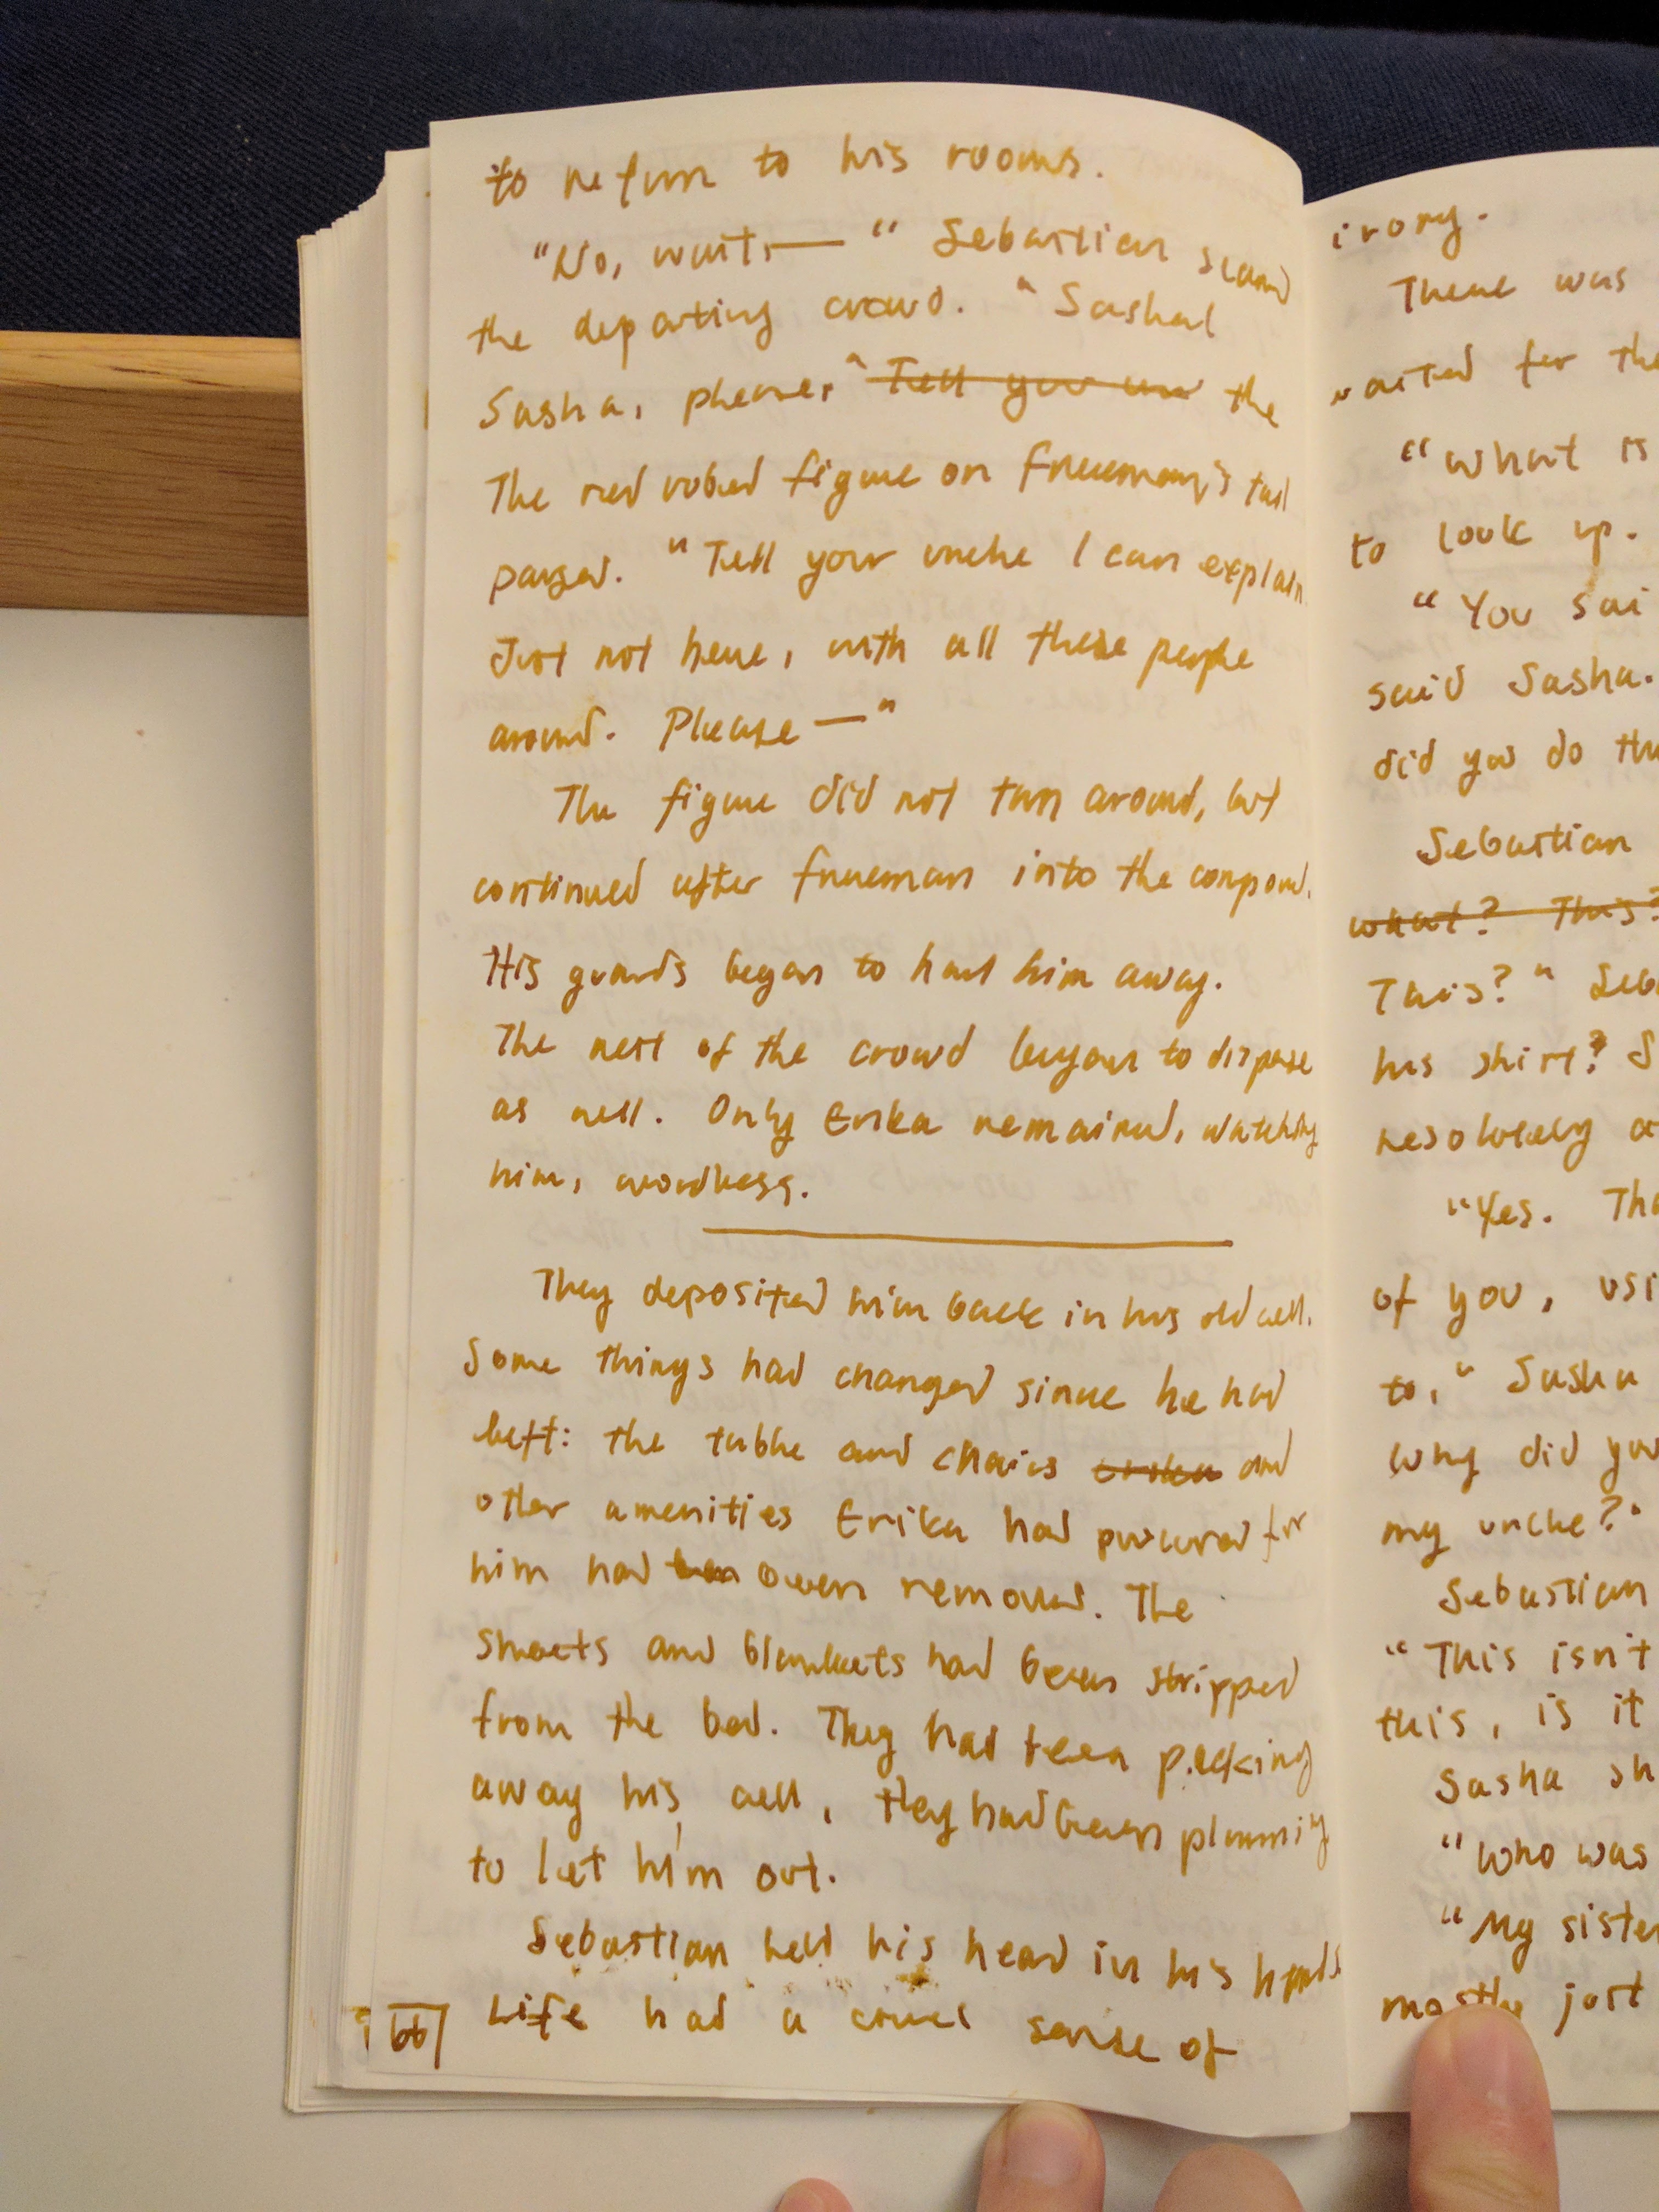 to return to his rooms.
"No, wait, — " Sebastian scand
the departing crowd. "Sasha!
Sasha, please," Tell your un the
The red robed figure on Freeman's tail
paused. "Tell your uncle I can explain.
Just not here, with all these people
around. Please —"
The figure did not turn around, but
continued after Freeman into the compound.
His guards began to haul him away.
The rest of the crowd began to disperse
as well. Only Erika remained, watching
him, wordless.
They deposited him back in his old cell.
Some things had changed since he had
left: the table and chairs Erika and
other amenities Erika had procured for
him had been removed. The
sheets and blankets had been stripped
from the bed. They had been packing
away his cell, they had been planning
to let him out.
Sebastian held his head in his hands.
Life had a cruel sense of
66
irony.
There was
waited for the
"What is
to look up.
"You sai
said Sasha.
did you do thi
Sebastian
what? This?
This?" Seb
his shirt? S
resolutely a
"Yes. Tha
of you, usi
to," Sasha
why did you
my uncle?"
Sebastian
"This isn't
this, is it
Sasha sh
"Who was
"My siste
mostly just